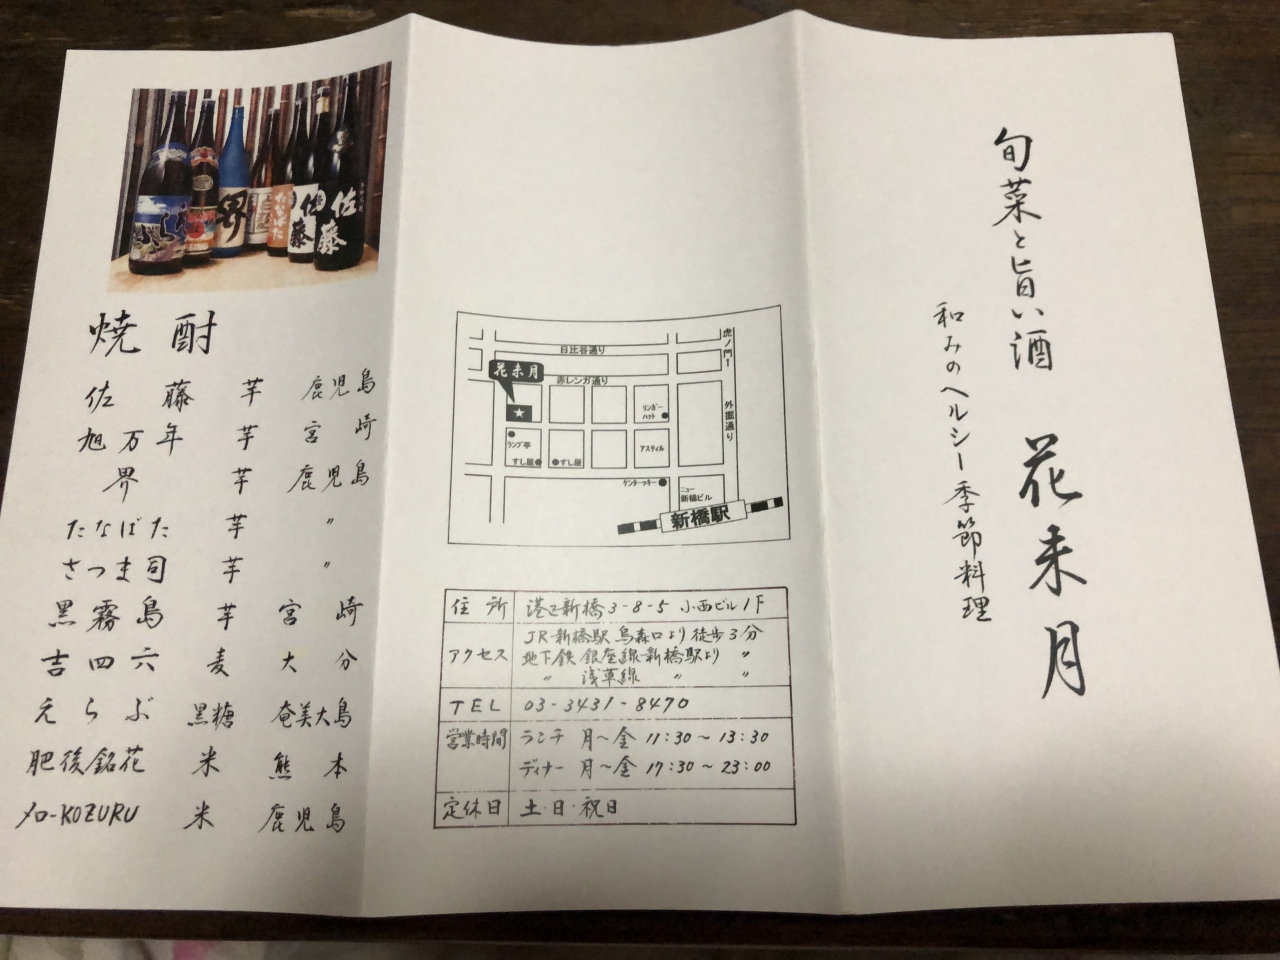 旬菜と旨い酒 花未月
和みのヘルシー季節料理
日比谷通り
虎ノ門1
花未月
赤レンガ通り
リンガーハット
外堀通り
ランプ亭
すし屋
すし屋
アスティル
ケンタッキー
ニュー新橋ビル
新橋駅
住所 港区新橋3-8-5 小西ビル1F
アクセス JR新橋駅 烏森口より徒歩3分
地下鉄 銀座線新橋駅より 〃
〃 浅草線 〃 〃
TEL 03-3431-8470
営業時間 ランチ 月〜金 11:30〜13:30
ディナー 月〜金 17:30〜23:00
定休日 土・日・祝日
界
たなばた
佐藤
佐藤
焼酎
佐藤 芋 鹿児島
旭万年 芋 宮崎
界 芋 鹿児島
たなばた 芋 〃
さつま司 芋 〃
黒霧島 芋 宮崎
吉四六 麦 大分
えらぶ 黒糖 奄美大島
肥後銘花 米 熊本
メロ-KOZURU 米 鹿児島